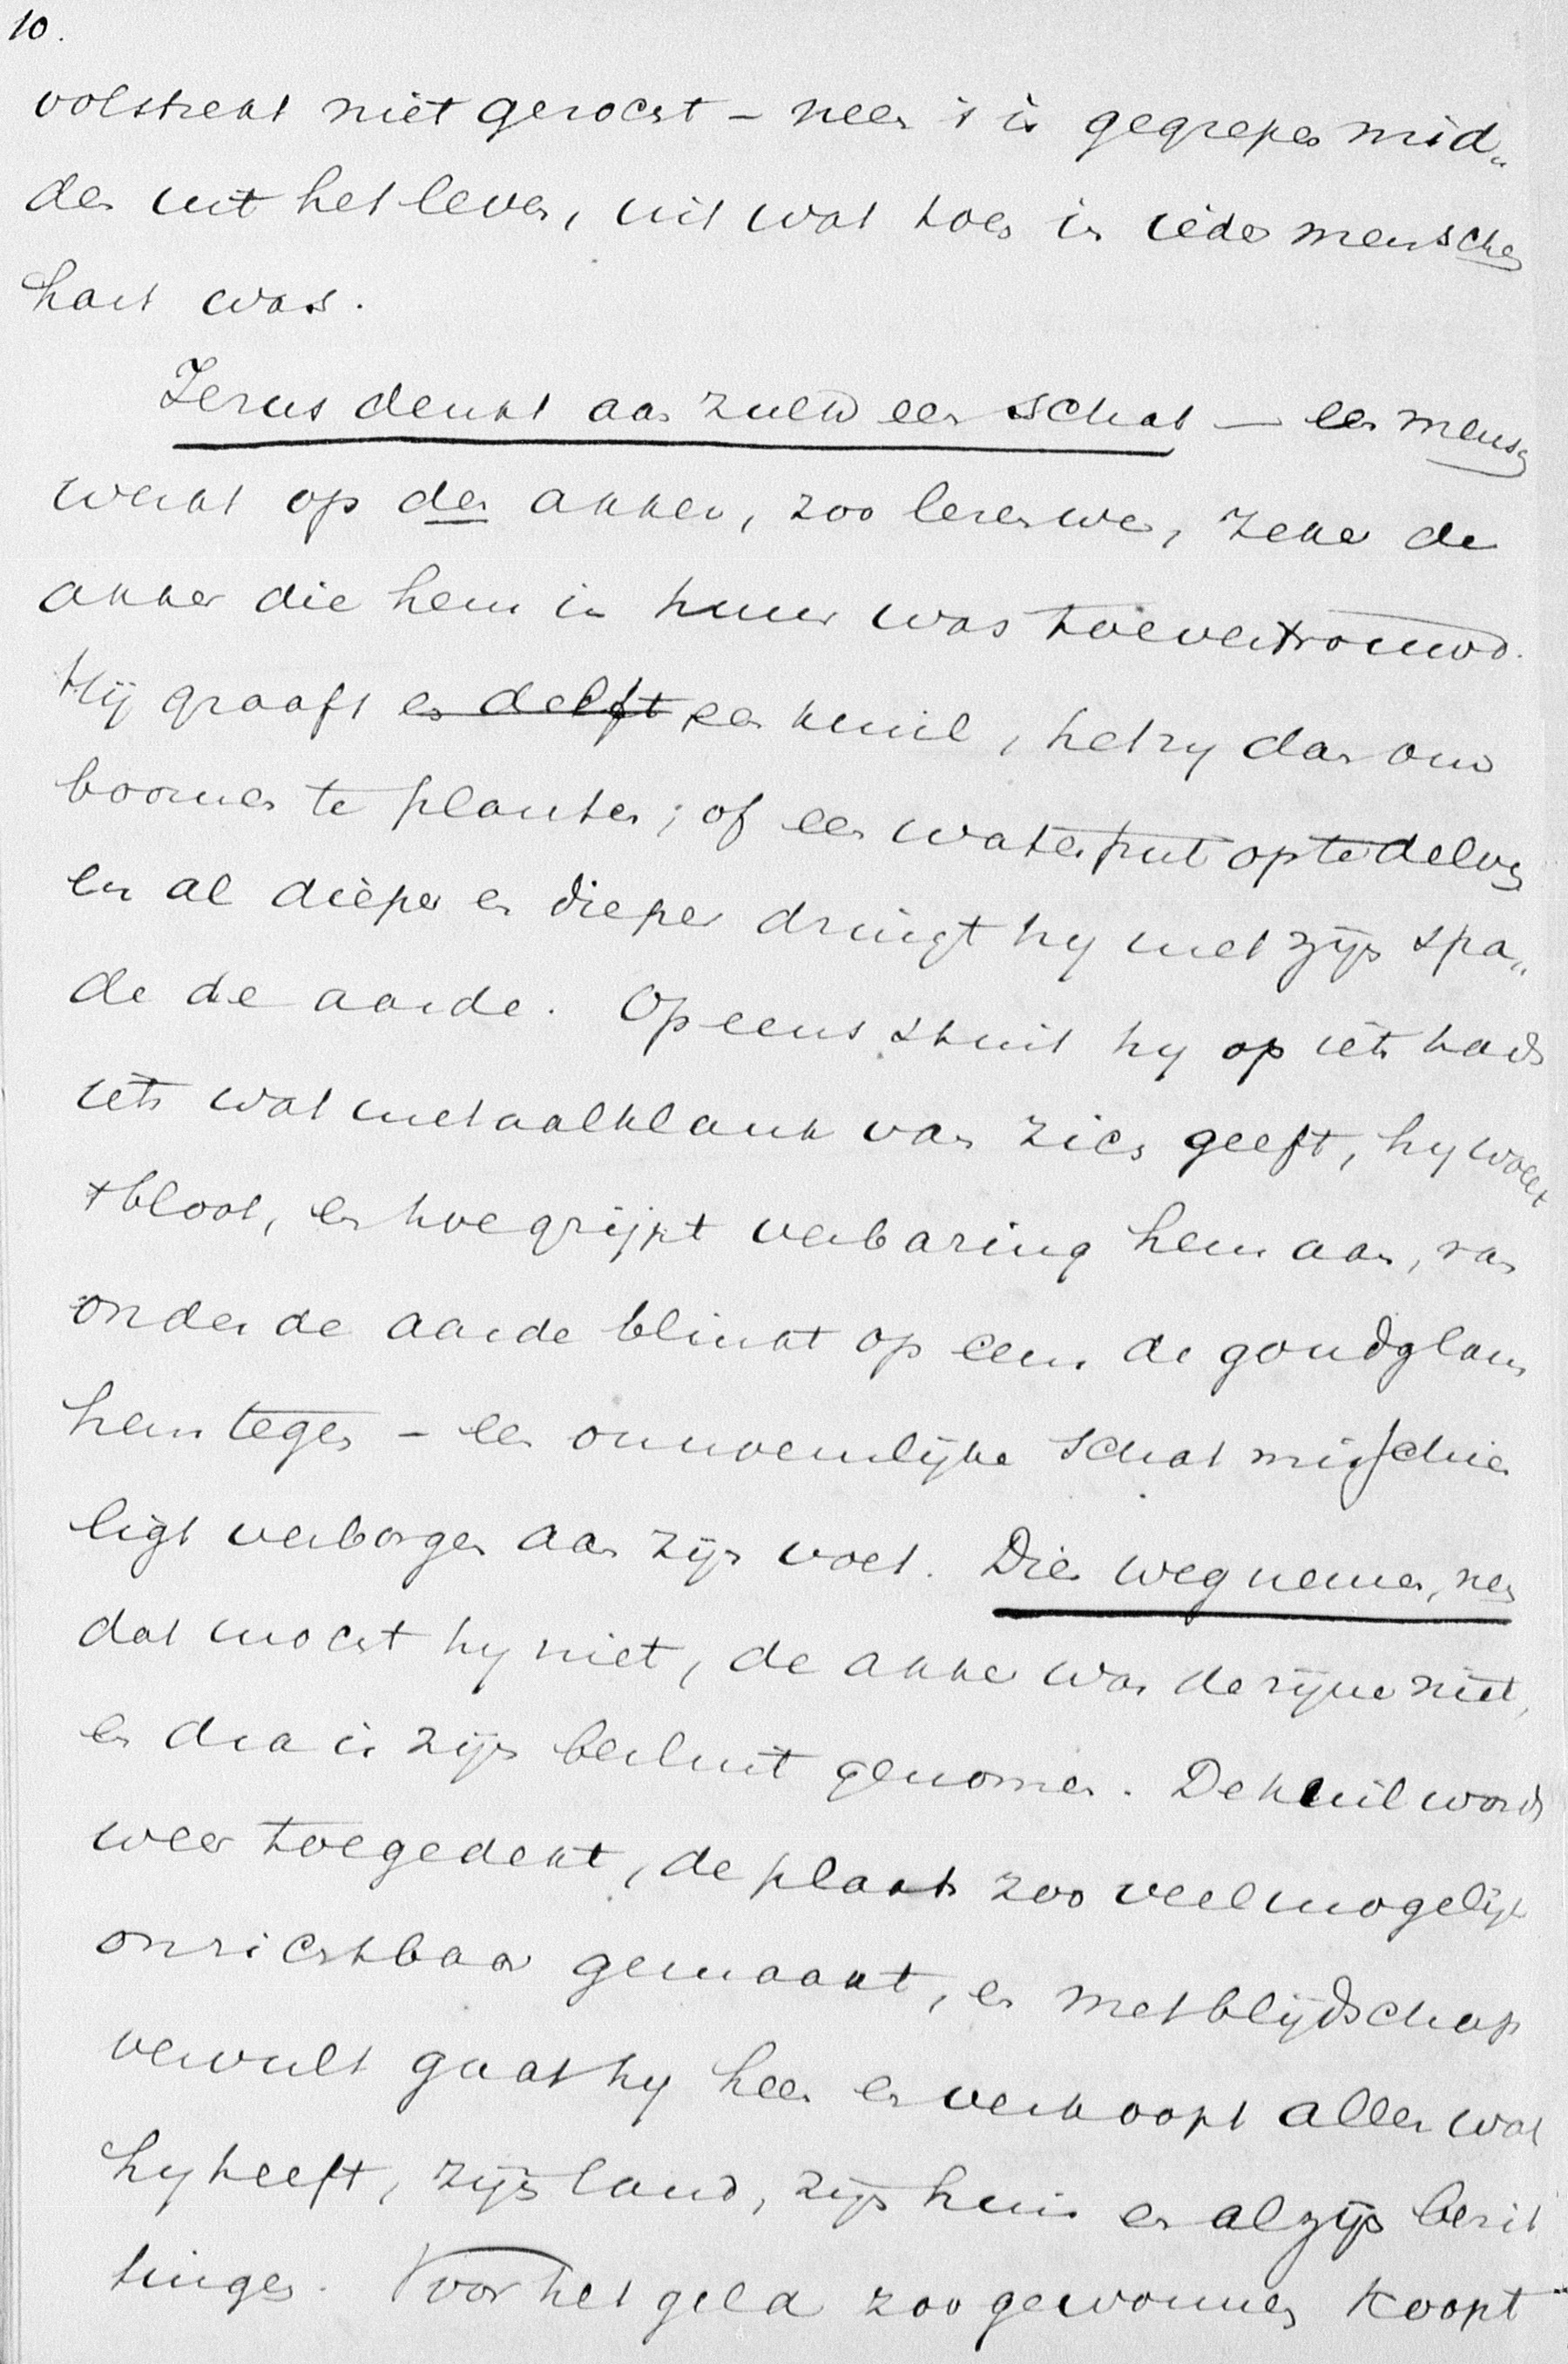 10.
volstrekt niet gezocht – neen 't is gegrepen mid„
den uit het leven, uit wat toen in ieder menschen
hart was.
Jezus denkt aan zulk een schat — een mensch
werkt op den akker, zoo lezen we, zeker de
akker die hem in huur was toevertrouwd.
Hij graaft en delft een kuil, hetzy dan om
boomen te planten; of een waterput op te delven
en al dieper en dieper dringt hy met zijn spa„
de de aarde. Opeens stuit hy op iets hards
iets wat metaalklank van zich geeft, hy woelt
't bloot, en hoe grijpt verbazing hem aan, van
onder de aarde blinkt op eens de goudglans
hem tegen – een onmeetlijke schat misschien
ligt verborgen aan zijn voet. Dien wegnemen, neen
dat mocht hy niet, de akker was de zijne niet,
en dra is zijn besluit genomen. De kuil wordt
weer toegedekt, de plaats zoo veel mogelijk
onzichtbaar gemaakt, en met blijdschap
vervult gaat hy heen en verkoopt alles wat
hy heeft, zijn land, zijn huis en al zijn bezit
tingen. Voor het geld zoo gewonnen koopt